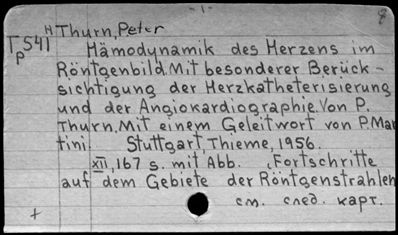 - 1 -
8
H Thurn, Peter
Tp541
Hämodynamik des Herzens im
Röntgenbild. Mit besonderer Berück-
sichtigung der Herzkatheterisierung
und der Angiokardiographie. Von P.
Thurn. Mit einem Geleitwort von P. Mar
tini. Stuttgart, Thieme, 1956.
XII, 167 s. mit Abb. (Fortschritte
auf dem Gebiete der Röntgenstrahlen
см. след. карт.
+